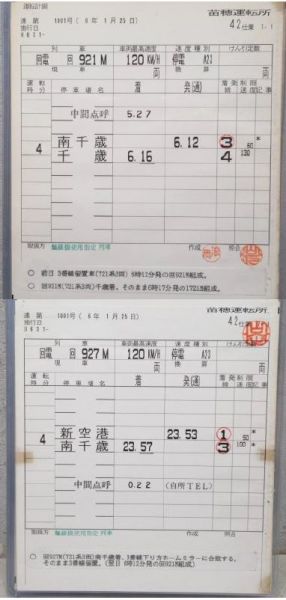 苗穂運転所
達第 1001号 ( 6年 1月25日)
施行日
42仕業 1-1
列車 車両最高速度 速度種別 けん引定数
回電 回 921M 120 KM/H 停電 A23
現車 両 換算 両
運転時分 停車場名 着 発(通) 着発線 制限速度 記事
中間点呼 5.27
南千歳 6.12 ③ 60
4 千歳 6.16 4 130
取扱方 軸線指使用指定 列車 作成 照合
○ 前日 3番線留置車(721系3両) 6時12分発の回921M組成。
○ 回921M(721系3両)千歳着、そのまま6時17分発の1721M組成。
苗穂運転所
達第 1001号 ( 6年 1月25日)
施行日
42仕業
列車 車両最高速度 速度種別 けん引定数
回電 回 927M 120 KM/H 停電 A23
現車 両 換算 両
運転時分 停車場名 着 発(通) 着発線 制限速度 記事
新空港 23.53 ①
4 南千歳 23.57 3
中間点呼 0.22 (自所TEL)
取扱方 軸線指使用指定 列車 作成 照合
○ 回927M(721系3両)南千歳着、3番線下り方ホーム6ラーに合致する。
そのまま3番線留置。(翌日 6時12分発の回921M組成)